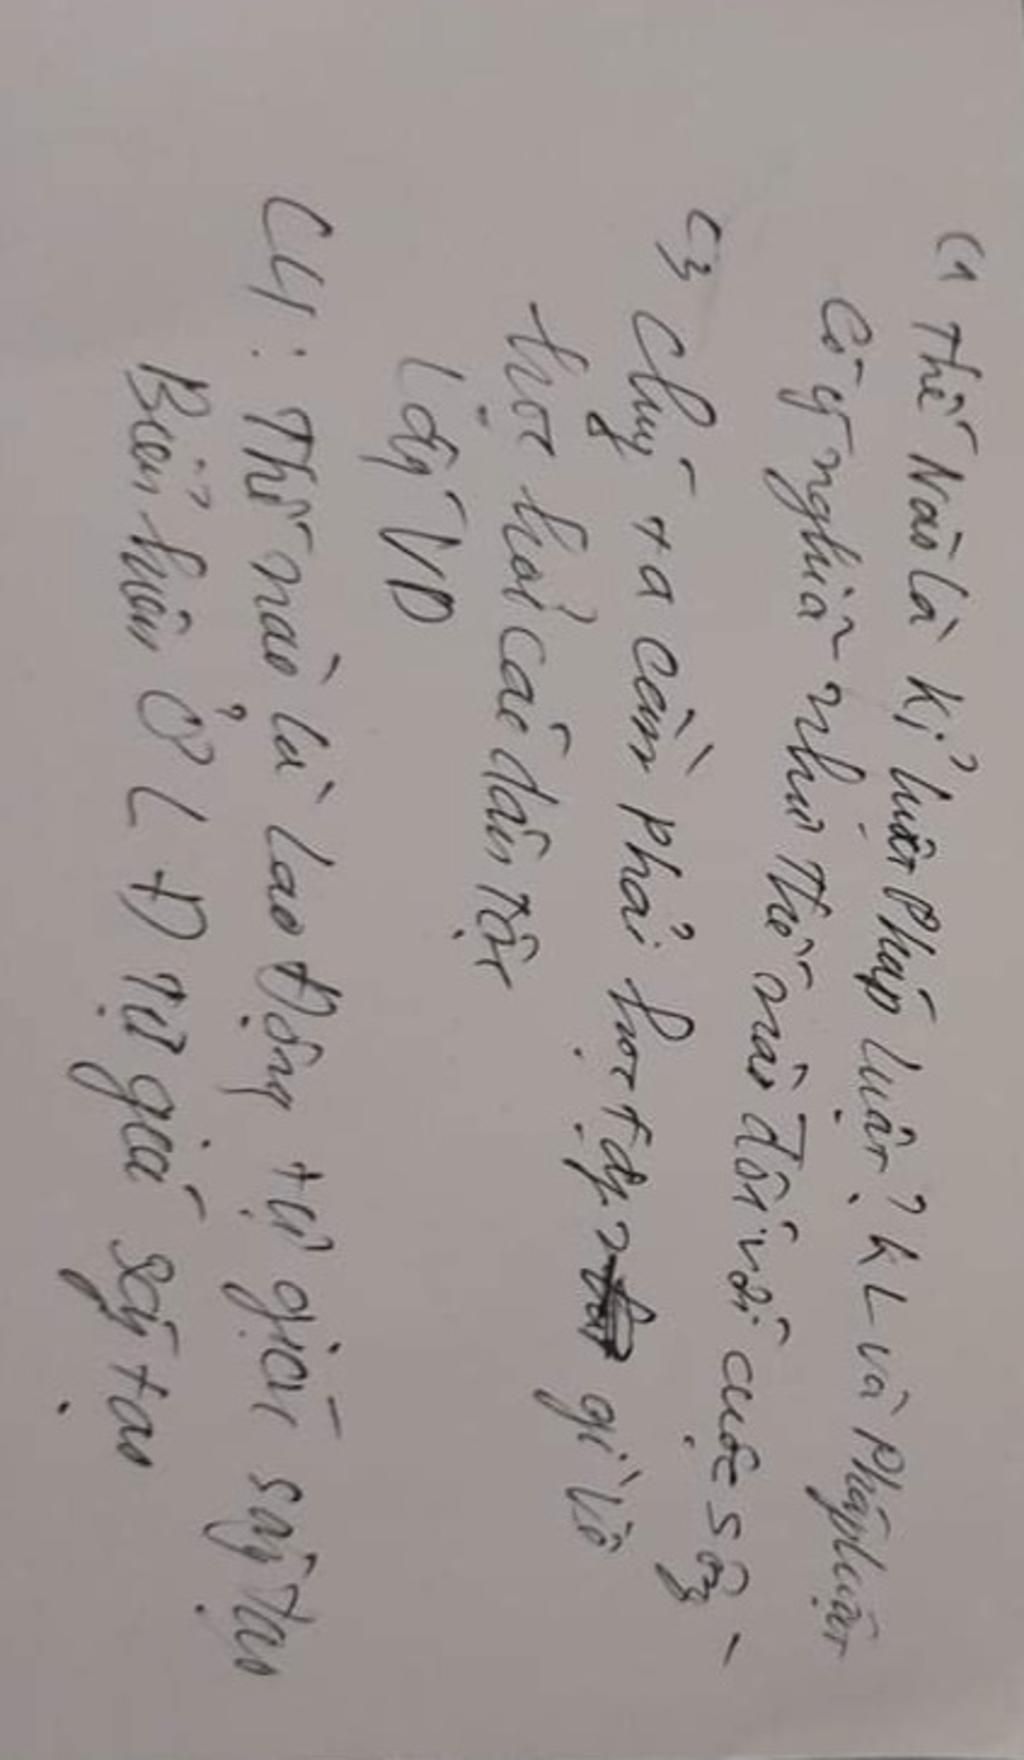 C1 Thế Nào là kỉ luật Pháp luật? KL và Pháp luật
Có ý nghĩa như thế nào đối với cuộc sống
C3 Chúng ta cần phải học tập gì về
học hỏi các dân tộc
Lấy VD
C4: Thế nào là lao động tự giác sáng tạo
Biểu hiện ở LĐ tự giác sáng tạo